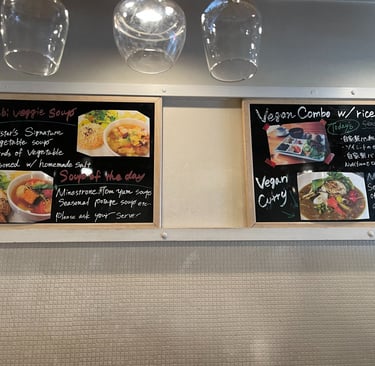 bi veggie Soup
Signature
getable soup
nds of Vegetable
soned w/ homemade salt
Soup of the day
Minestrone, Tom yum soup
Seasonal potage soup etc..
please ask your server
Vegan Combo w/ rice
Today's
Vegan
Curry